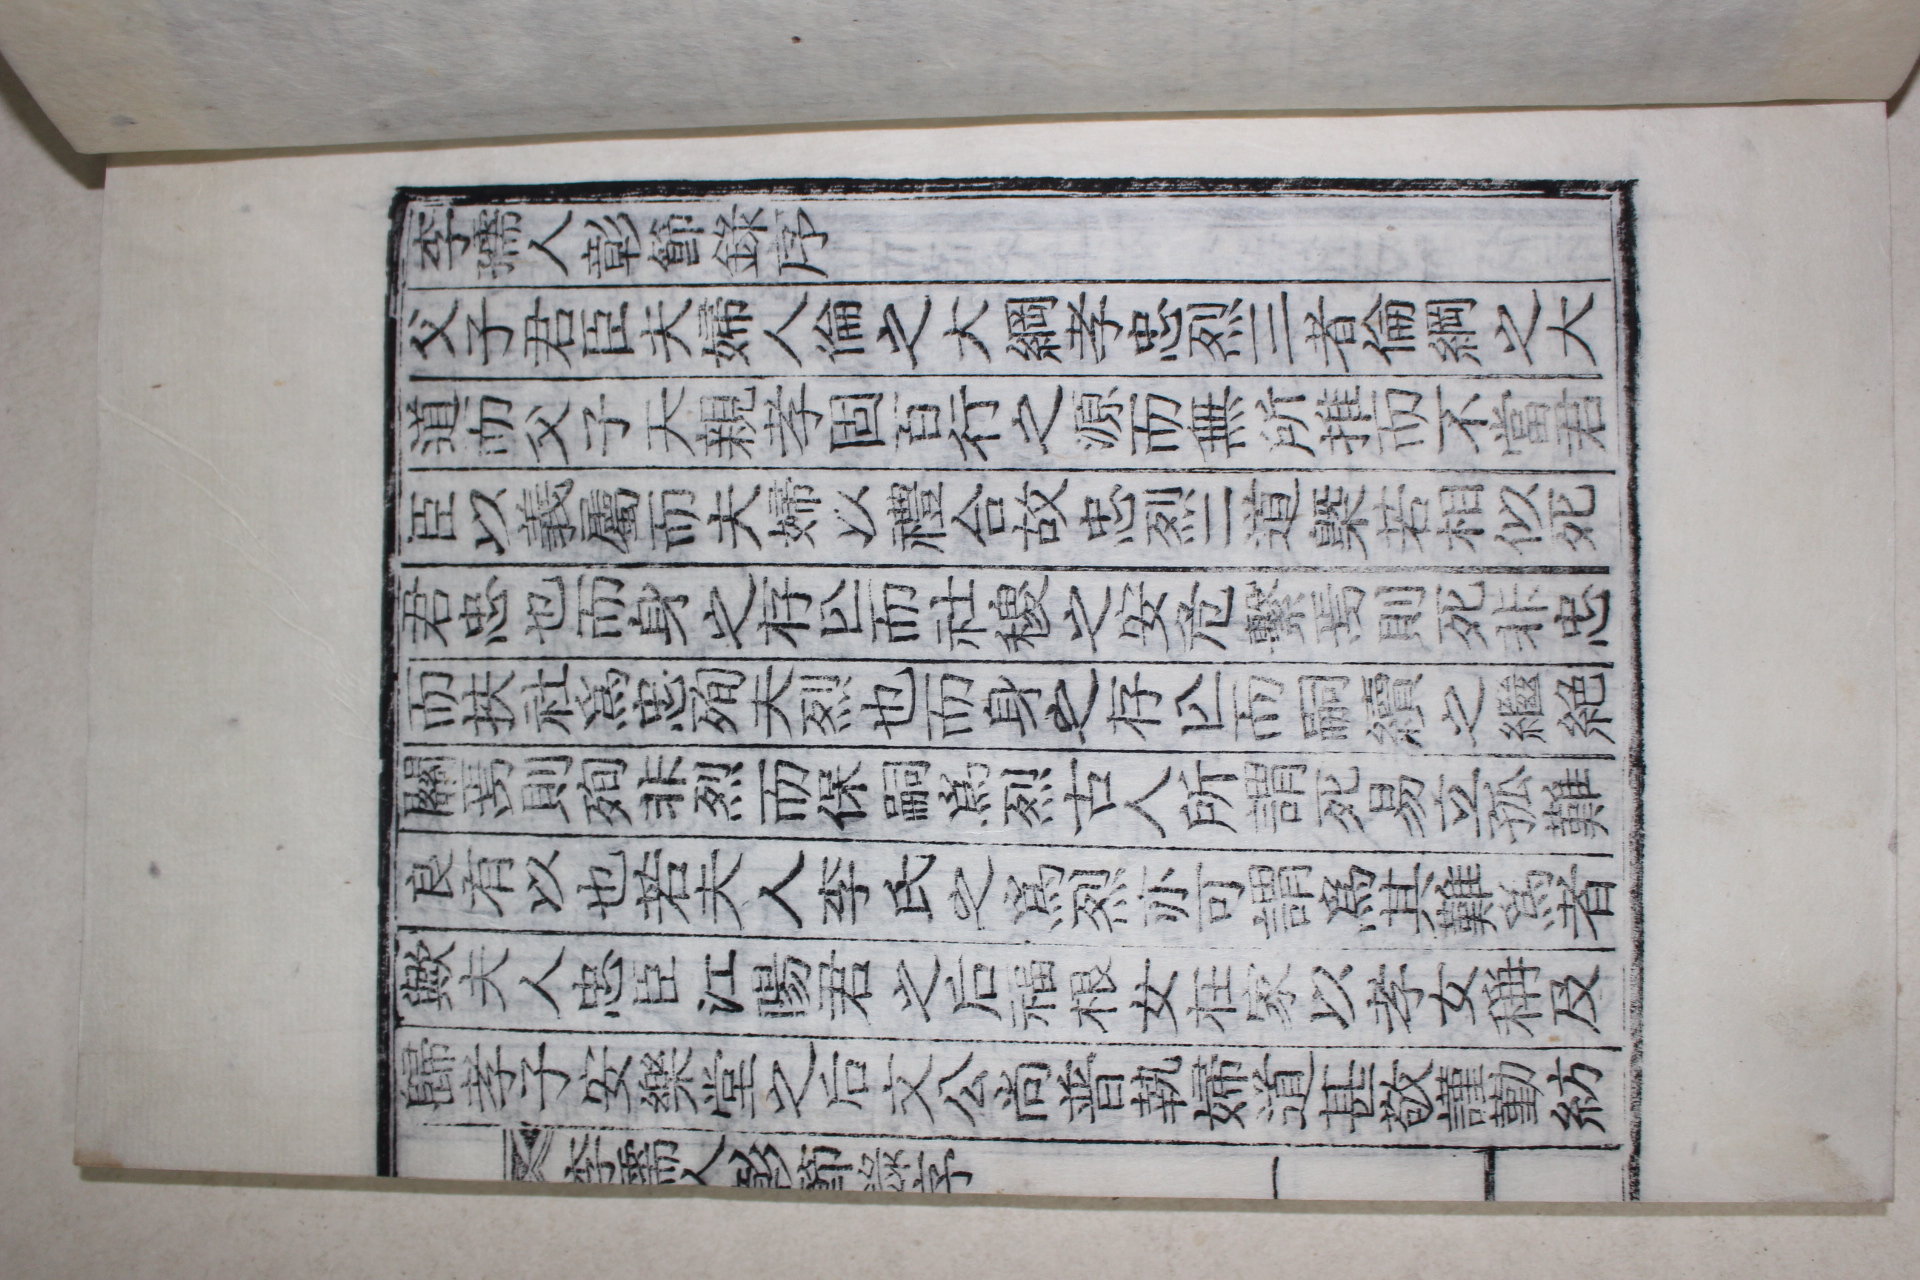 李孺人彰節錄序
父子君臣夫婦人倫之大綱孝忠烈三者倫綱之大
道而父子天親孝固百行之源而無所推而不當君
臣以義屬而夫婦以禮合故忠烈二道槩若相似死
君忠也而身之存亾而社稷之安危繫焉則死非忠
而扶社爲忠殉夫烈也而身之存亾而嗣續之繼絶
關焉則殉非烈而保嗣爲烈古人所謂死易立孤難
良有以也若夫人李氏之爲烈亦可謂爲其難爲者
歟夫人忠臣江陽君之后福根女在家以孝女稱及
歸孝子安樂堂之后文公尚普執婦道甚敬謹勤紡
李孺人彰節錄序
一